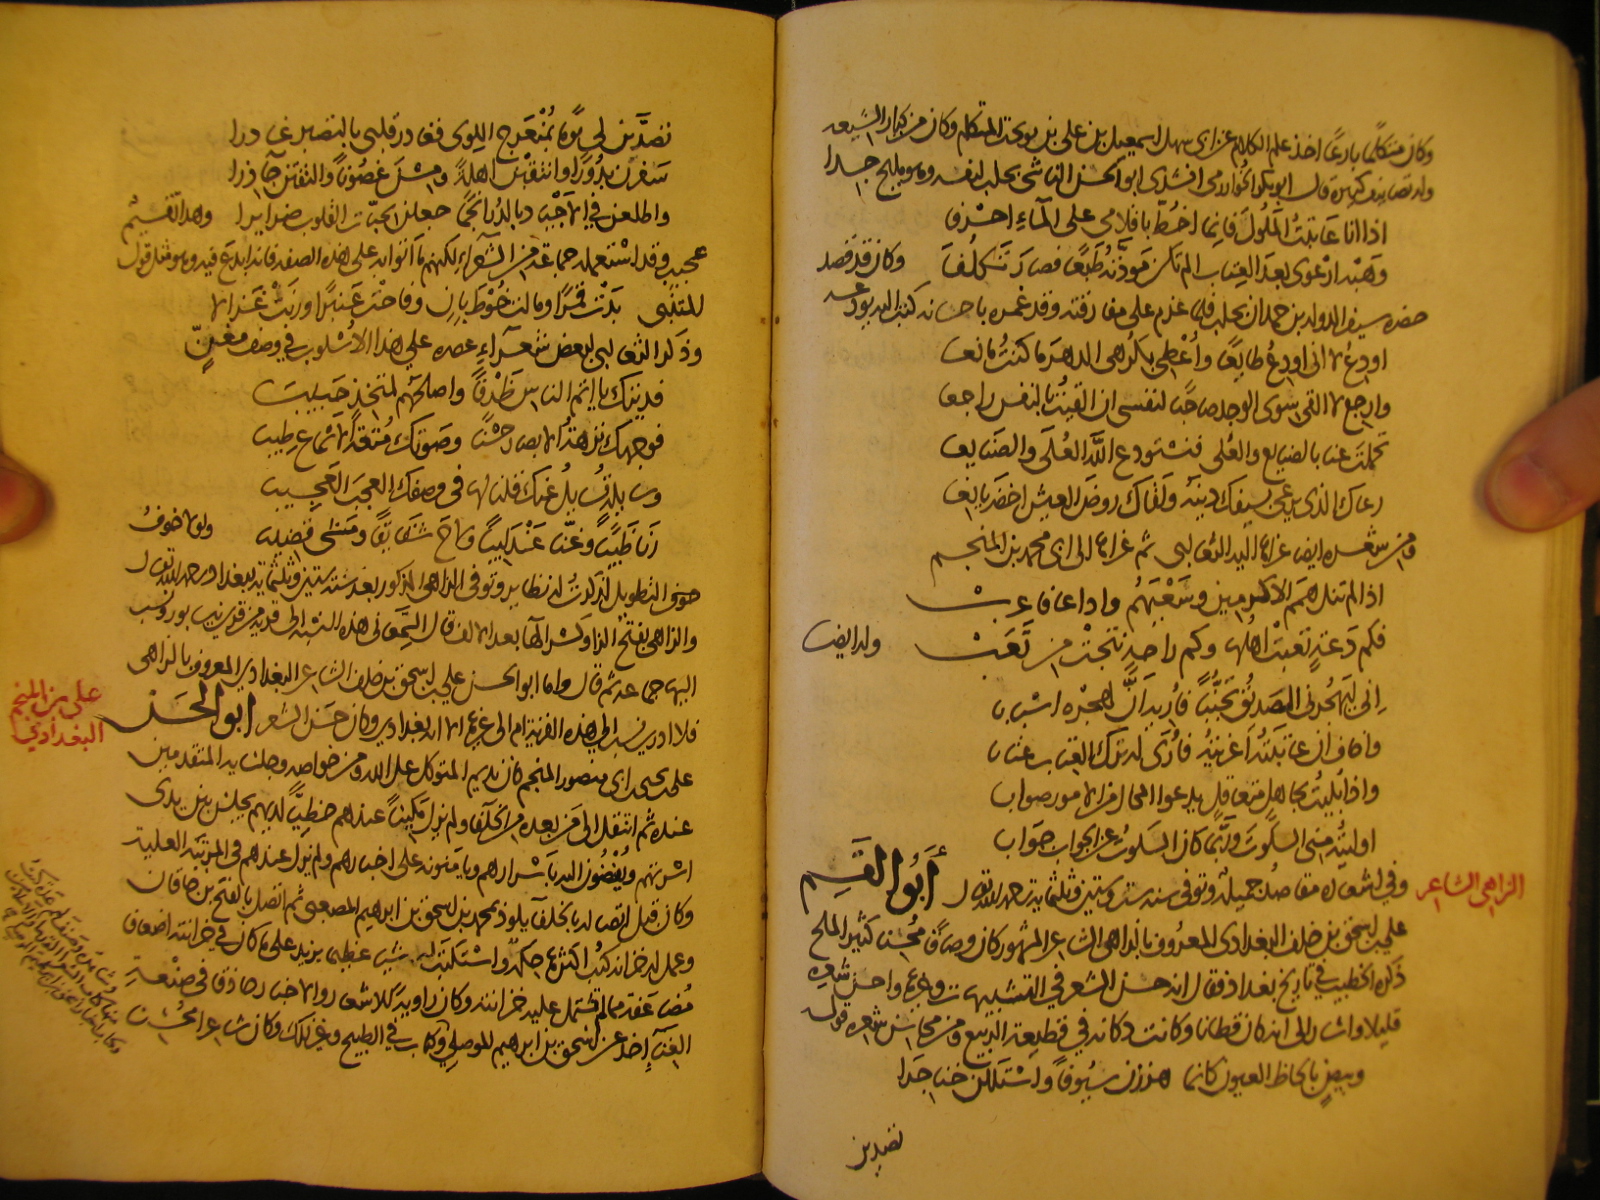 وكان متكلما بارعا اخذ علم الكلام عن ابى سهل اسمعيل بن على بن نوبخت المتكلم وكان من كبار الشيعه
وله تصانيف كثيرة قال ابو بكر الخوارزمى انشدنى ابو الحسن الناشى بحلب لنفسه وهو مليح جدا
اذا انا عاتبت الملول فانما اخط باقلامى على المآء احرفا
وهبه ارعوى بعد العتاب الم تكن مودته طبعا فصارت تكلفا وكان قد قصد
حضرة سيف الدوله بن حمدان بحلب فلما عزم على مفارقته وقد غمره باحسانه كتب اليه يودعه
اودع لا انى اودع طايعا واعطى بكرهى الدهر ما كنت مانعا
وارجع لا القى سوى الوجد صاحبا لنفسى ان القيت بالنفس راجعا
تحملت عنا بالصنايع والعلى فنستودع الله العلى والصنايعا
رعاك الذى يرعى بسيفك دينه ولقاك روض العيش اخضر يانعا
ومن شعره ايضا عزاها اليه الثعالبى ثم عزاها الى ابى محمد بن المنجم
اذا لم تنل همم الاكرمين وسعيهم وادعا فاغترب
فكم دعة تعبت اهلها وكم راحة نتجت من تعب وله ايضا
انى ليهجرنى الصديق تجنبا فاريه ان لهجره اسبابا
واخاف ان عاتبته اغريته فارى له ترك العتاب عتابا
واذا بليت بجاهل متغافل يدعو المحال من الامور صوابا
اوليته منى السكوت وربما كان السكوت عن الجواب جوابا
وفى اشعاره مقاصد جميلة وتوفى سنه ست وستين وثلثماية رحمه الله تعالى ابو القسم
الزاهى الشاعر
على بن اسحق بن خلف البغدادى المعروف بالزاهى الشاعر المشهور كان وصافا محسنا كثير الملح
ذكره الخطيب فى تاريخ بغداد فقال انه حسن الشعر فى التشبيهات وغيرها واحسب شعره
قليلا واشار الى انه كان قطانا وكانت دكانه فى قطيعة الربيع ومن محاسن شعره قوله
وبيض بالحاظ العيون كانما هززن سيوفا واستللن خناجرا
تصدين
تصدين لى يوما بمنعرج اللوى فغادرن قلبى بالتصبر غادرا
سفرن بدورا وانتقبن اهلة ومسن غصونا والتفتن جآذرا
واطلعن فى الاجياد بالدر انجما جعلن لحبات القلوب ضرايرا وهذا التقسيم
عجيب وقد استعمله جماعة من الشعراء لكنهم ما اتوا به على هذه الصفه فانه ابدع فيه وهو مثل قول
للمتنبى بدت قمرا ومالت خوط بان وفاحت عنبرا ورنت غزالا
وذكر الثعالبى لبعض شعراء عصره على هذا الاسلوب فى وصف مغن
فديتك يا اتم الناس ظرفا واصلحهم لمتخذ حبيبا
فوجهك نزهة الابصار حسنا وصوتك متعة الاسماع طيبا
وسايلة تسايل عنك قلنا لها فى وصفك العجب العجيبا
رنا ظبيا وغنى عندليبا ولاح شقايقا ومشى قضيبا ولولا خوف
خوف التطويل لذكرت له نظاير وتوفى الزاهى المذكور بعد سنة ستين وثلثماية ببغداد رحمه الله تعالى
والزاهى بفتح الزا وكسر الهآ بعد الالف قال السمعانى هذه النسبة الى قرية من قرى نيسابور ونسب
اليها جماعة ثم قال واما ابو الحسن على بن اسحق بن خلف الشاعر البغدادى المعروف بالزاهى
فلا ادرى نسب الى هذه القرية ام الى غيرها الا انه بغدادى وكان حسن الشعر ابو الحسن
على بن المنجم
البغدادي
على بن يحيى بن ابى منصور المنجم كان نديم المتوكل على الله ومن خواصه وجلسايه المتقدمين
عنده ثم انتقل الى من بعده من الخلفا ولم يزل مكينا عندهم حظيا لديهم يجلس بين يدى
اسرتهم ويفضون اليه باسرارهم ويامنونه على اخبارهم ولم يزل عندهم فى المرتبه العليه
وكان قبل اتصاله بالخلفا يلوذ بمحمد بن اسحق بن ابرهيم المصعبى ثم اتصل بالفتح بن خاقان
وعمل له خزانة كتب اكثرها حكمة واستكتب له شيا عظيما يزيد على ما كان فى خزانته اضعاف
مضاعفة مما لم تشتمل عليه خزانته وكان راوية للاشعار والاخبار حاذقا فى صنعة
الغنآ اخذ عن اسحق بن ابرهيم الموصلى وكتاب فى الطبيخ وغير ذلك وكان شاعرا محسنا